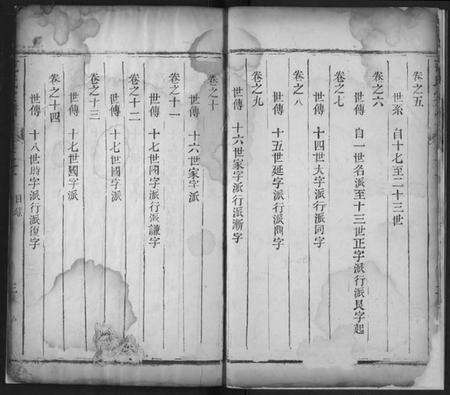 卷之五
世系 自十七至二十三世
卷之六
世傳 自一世名派至十三世正字派行派艮字起
卷之七
世傳 十四世大字派行派同字
卷之八
世傳 十五世延字派行派周字
卷之九
世傳 十六世家字派行派漸字
卷之十
世傳 十六世家字派
卷之十一
世傳 十七世國字派行派謙字
卷之十二
世傳 十七世國字派
卷之十三
世傳 十七世國字派
卷之十四
世傳 十八世時字派行派復字
目錄